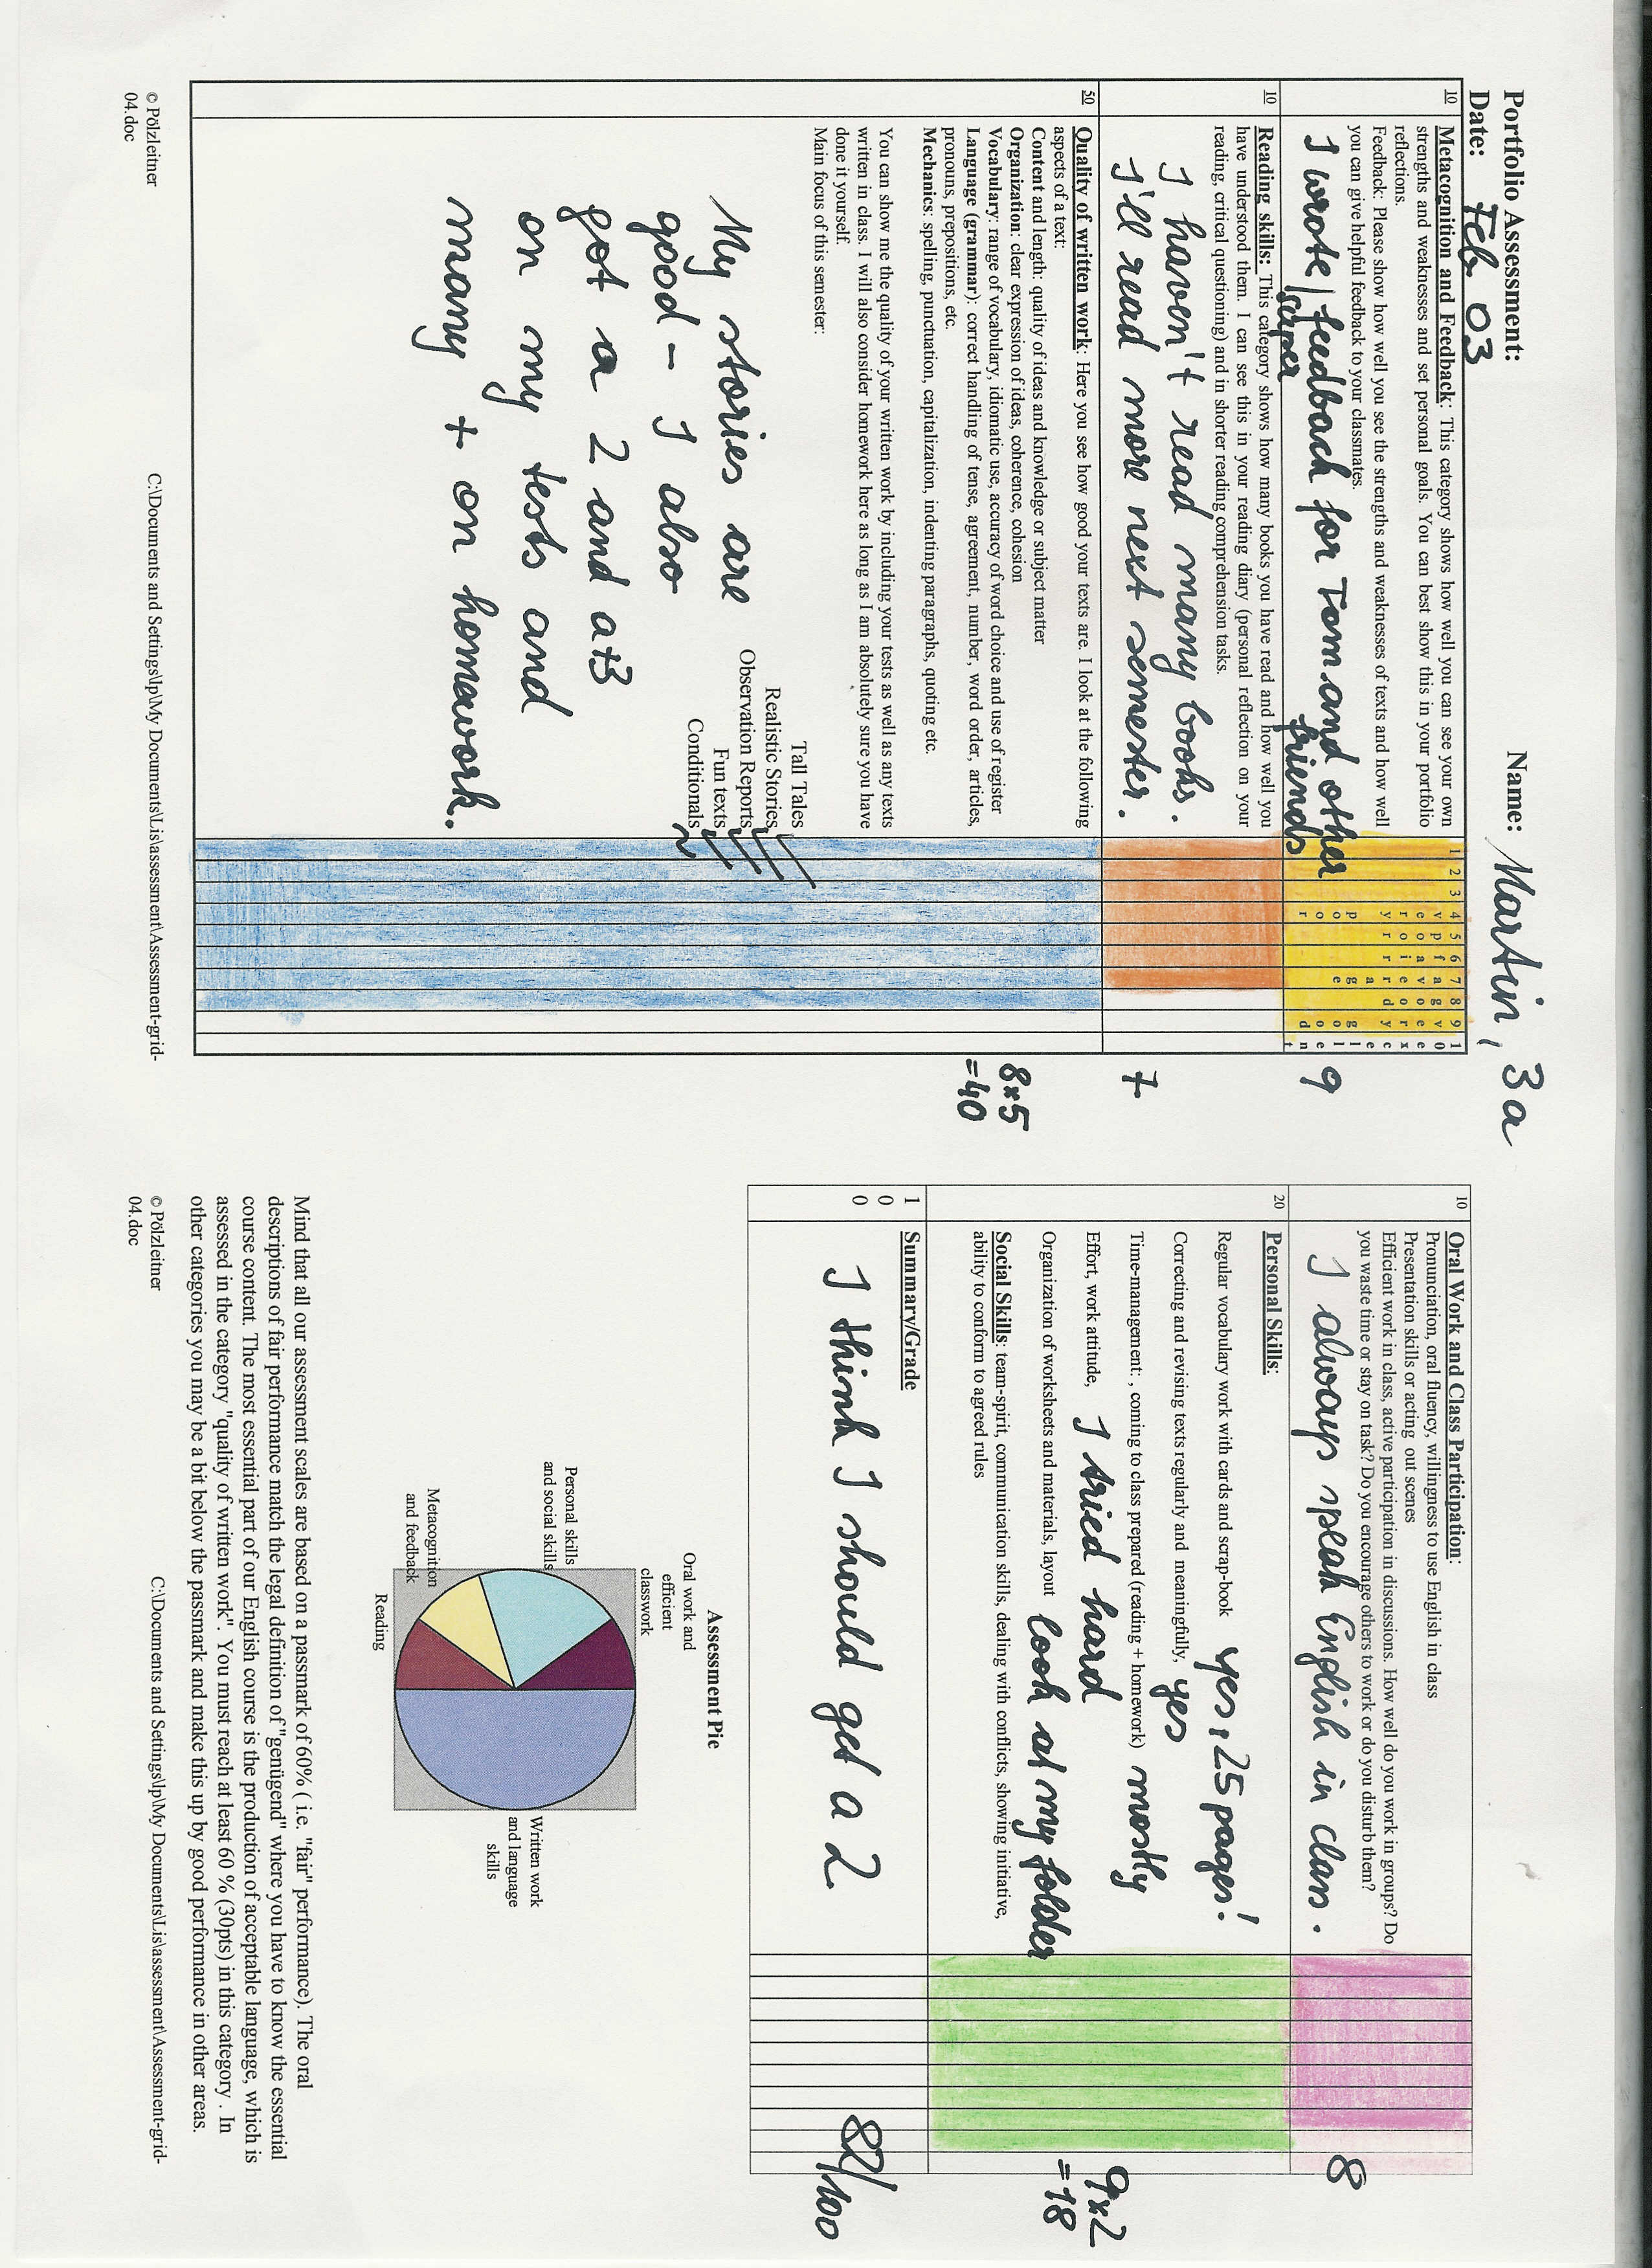 Portfolio Assessment: Name: Martin, 3a
Date: Feb 03
10 Metacognition and Feedback: This category shows how well you can see your own
strengths and weaknesses and set personal goals. You can best show this in your portfolio
reflections.
Feedback: Please show how well you see the strengths and weaknesses of texts and how well
you can give helpful feedback to your classmates.
I wrote super feedback for Tom and other
friends
1 2 3 4 5 6 7 8 9 1
0
very poor
poor
fair
average
good
very good
excellent
9
10 Reading skills: This category shows how many books you have read and how well you
have understood them. I can see this in your reading diary (personal reflection on your
reading, critical questioning) and in shorter reading comprehension tasks.
I haven't read many books.
I'll read more next semester.
7
50 Quality of written work: Here you see how good your texts are. I look at the following
aspects of a text:
Content and length: quality of ideas and knowledge or subject matter
Organization: clear expression of ideas, coherence, cohesion
Vocabulary: range of vocabulary, idiomatic use, accuracy of word choice and use of register
Language (grammar): correct handling of tense, agreement, number, word order, articles,
pronouns, prepositions, etc.
Mechanics: spelling, punctuation, capitalization, indenting paragraphs, quoting etc.
8x5
=40
You can show me the quality of your written work by including your tests as well as any texts
written in class. I will also consider homework here as long as I am absolutely sure you have
done it yourself.
Main focus of this semester:
Tall Tales
Realistic Stories
Observation Reports
Fun texts
Conditionals ~
My stories are
good - I also
got a 2 and a +3
on my tests and
many + on homework.
© Pölzleitner C:\Documents and Settings\lp\My Documents\Lis\assessment\Assessment-grid-
04.doc
10 Oral Work and Class Participation:
Pronunciation, oral fluency, willingness to use English in class
Presentation skills or acting out scenes
Efficient work in class, active participation in discussions. How well do you work in groups? Do
you waste time or stay on task? Do you encourage others to work or do you disturb them?
I always speak English in class.
8
20 Personal Skills:
Regular vocabulary work with cards and scrap-book yes, 25 pages!
Correcting and revising texts regularly and meaningfully, yes
Time-management: , coming to class prepared (reading + homework) mostly
Effort, work attitude, I tried hard
Organization of worksheets and materials, layout look at my folder
Social Skills: team-spirit, communication skills, dealing with conflicts, showing initiative,
ability to conform to agreed rules
9x2
=18
1
0
0
Summary/Grade
I think I should get a 2
82/100
Assessment Pie
Oral work and
efficient
classwork
Personal skills
and social skills
Metacognition
and feedback
Reading
Written work
and language
skills
Mind that all our assessment scales are based on a passmark of 60% ( i.e. "fair" performance). The oral
descriptions of fair performance match the legal definition of "genügend" where you have to know the essential
course content. The most essential part of our English course is the production of acceptable language, which is
assessed in the category "quality of written work". You must reach at least 60 % (30pts) in this category . In
other categories you may be a bit below the passmark and make this up by good performance in other areas.
© Pölzleitner C:\Documents and Settings\lp\My Documents\Lis\assessment\Assessment-grid-
04.doc